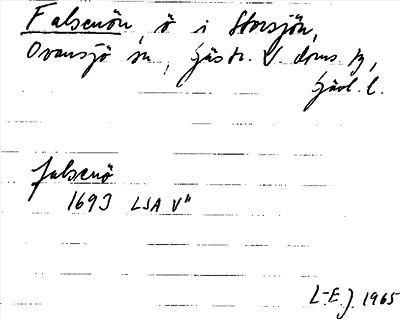 Falsenön, ö i Storsjön,
Ovansjö sn, Gästr. V. doms tg,
Gävl. l.
falsenö
1693 LSA V"
L-E.J. 1965